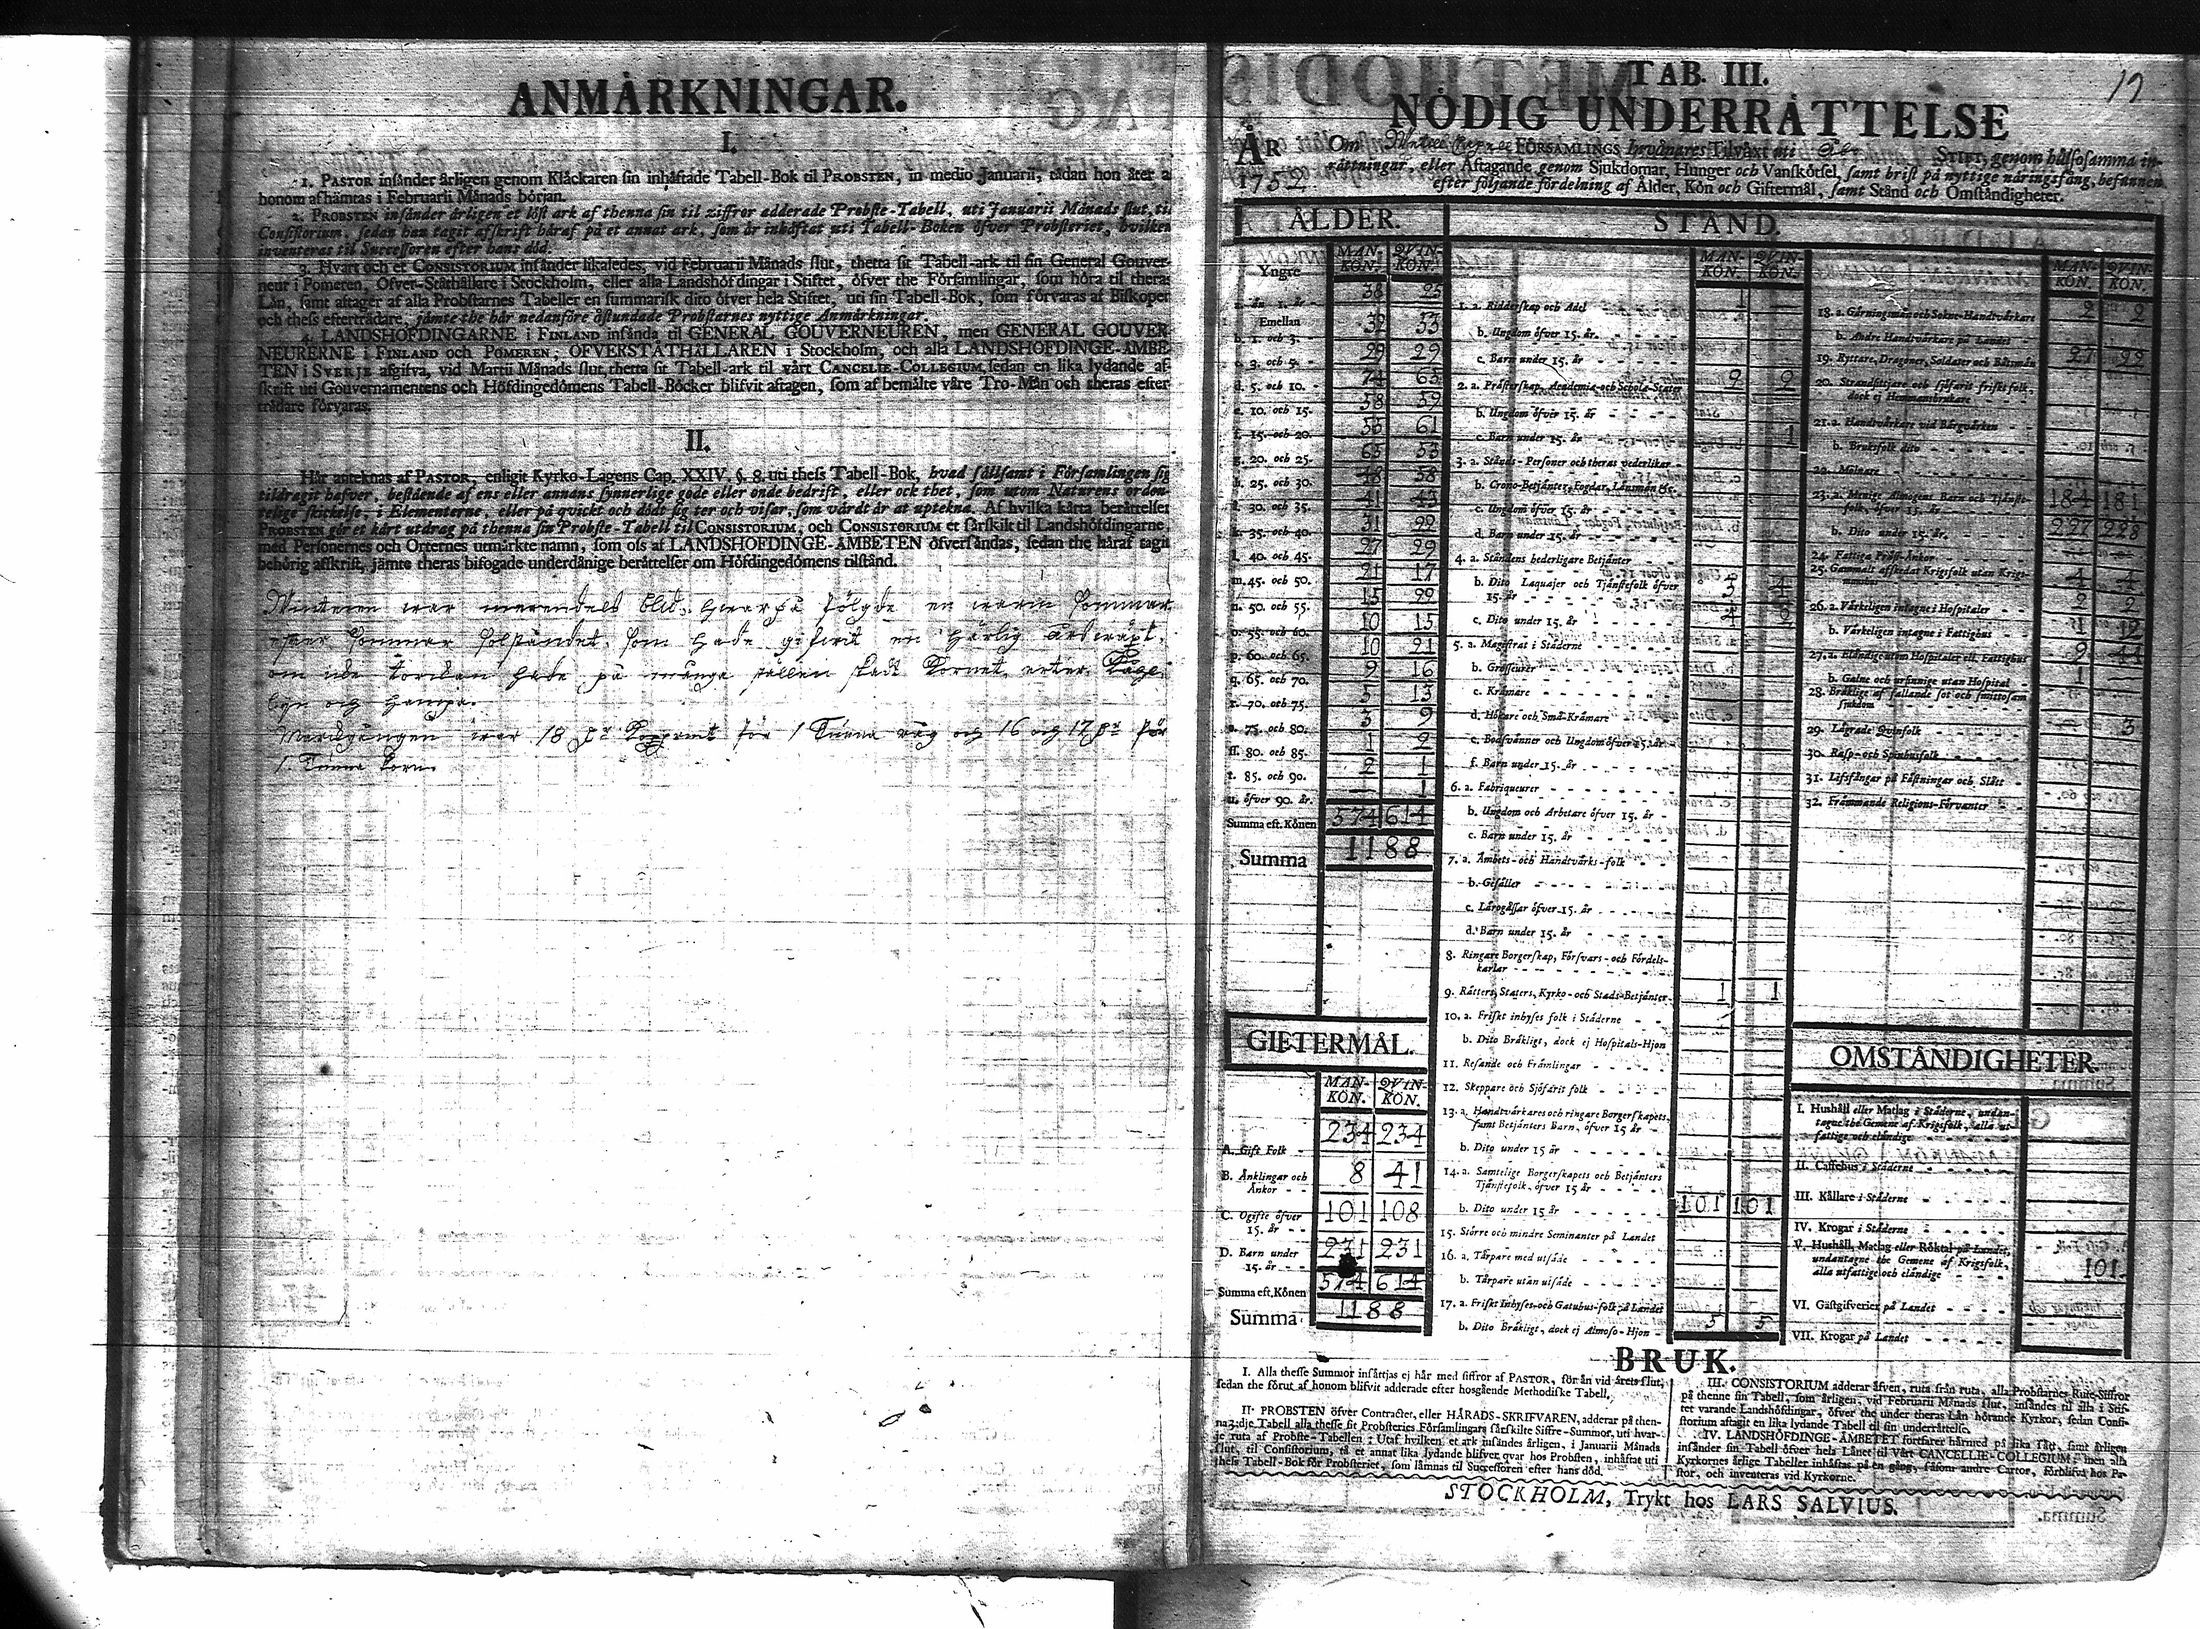 ANMÄRKNINGAR.
I.
1. PASTOR insänder årligen genom Klåckaren sin inhäftade Tabell-Bok til PROBSTEN, in medio Januarii, tådan hon åter a
honom afhämtas i Februarii Månads början.
2. PROBSTEN insänder årligen et löst ark af thenna sin til ziffror adderade Probste-Tabell, uti Januarii Månads slut, til
Consistorium, sedan han tagit afskrift häraf på et annat ark, som är inhäftat uti Tabell-Boken öfver Probsteriet, hvilken
inventeras til Successoren efter hans död.
3. Hvart och et CONSISTORIUM insänder likaledes, vid Februarii Månads slut, thetta sit Tabell-ark til sin General Gouver-
neur i Pomeren, Öfver-Ståthållare i Stockholm, eller alla Landshöfdingar i Stiftet, öfver the Församlingar, som höra til theras
Län, samt aftager af alla Probstarnes Tabeller en summarisk dito öfver hela Stiftet, uti sin Tabell-Bok, som förvaras af Biskopen
och thess efterträdare, jämte the här nedanföre åstundade Probstarnes nyttige Anmärkningar.
4. LANDSHÖFDINGARNE i FINLAND insända til GENERAL GOUVERNEUREN, men GENERAL GOUVER-
NEURERNE i FINLAND och POMEREN, ÖFVERSTÅTHÅLLAREN i Stockholm, och alla LANDSHÖFDINGE-ÄMBE
TEN i SVERJE afgifva, vid Martii Månads slut, thetta sit Tabell-ark til vårt CANCELIE-COLLEGIUM, sedan en lika lydande af-
skrift uti Gouvernamentens och Höfdingedömens Tabell-Böcker blifvit aftagen, som af bemälte våre Tro-Män och theras efter-
trädare förvaras.
II.
Här anteknas af PASTOR, enligit Kyrko-Lagens Cap. XXIV. §. 8. uti thess Tabell-Bok, hvad sällsamt i Församlingen sig
tildragit hafver, bestående af ens eller annans synnerlige gode eller onde bedrift, eller ock thet, som utom Naturens orden-
telige skickelse, i Elementerne, eller på qvickt och dödt sig ter och visar, som värdt är at uptekna. Af hvilka korta berättelser
PROBSTEN gör et kårt utdrag på thenna sin Probste-Tabell til CONSISTORIUM, och CONSISTORIUM et särskilt til Landshöfdingarne,
med Personernes och Orternes utmärkte namn, som oss af LANDSHÖFDINGE-ÄMBETEN öfversändas, sedan the häraf tagit
behörig afskrift, jämte theras bifogade underdånige berättelser om Höfdingedömens tilstånd.
Winteren war merendels blid, hwarpå fölgde en warm Sommar
efter Sommar solståndet, som hade gifwit en härlig årswäxt,
om icke torckan hade på många ställen skadt Kornet, erter,
och hampa.
Marckgången war 18 för 1 Tunna råg och 16 och 17 för
1. Tunna Korn.
TAB. III.
NÖDIG UNDERRÄTTELSE
ÅR 1752. Om FÖRSAMLINGS Invånares Tilväxt uti Åbo STIFT, genom hälsosamma in-
rättningar, eller Aftagande genom Sjukdomar, Hunger och Vanskötsel, samt brist på nyttige näringsfång, befunnen
efter följande fördelning af Ålder, Kön och Giftermål, samt Stånd och Omständigheter.
ÅLDER. STÅND.
MAN-KÖN. QVIN-KÖN.
Yngre
a. än 1. år 38 25
Emellan
b. 1. och 3. 32 33
c. 3. och 5. 29 29
d. 5. och 10. 74 65
e. 10. och 15. 58 59
f. 15. och 20. 55 61
g. 20. och 25. 65 53
h. 25. och 30. 48 58
i. 30. och 35. 41 43
k. 35. och 40. 31 22
l. 40. och 45. 27 29
m. 45. och 50. 21 17
n. 50. och 55. 15 29
o. 55. och 60. 10 15
p. 60. och 65. 10 21
q. 65. och 70. 9 16
r. 70. och 75. 5 13
s. 75. och 80. 3 9
ss. 80. och 85. 1 2
t. 85. och 90. 2 1
u. öfver 90. år. 1
Summa eft. Könen 574 614
Summa 1188
GIFTERMÅL.
MAN-KÖN. QVIN-KÖN.
A. Gift Folk 234 234
B. Änklingar och Änkor 8 41
C. Ogifte öfver 15. år 101 108
D. Barn under 15. år 231 231
Summa eft. Könen 574 614
Summa 1188
MAN-KÖN. QVIN-KÖN.
1. a. Ridderskap och Adel 1
b. Ungdom öfver 15. år.
c. Barn under 15. år
2. a. Prästerskap, Academiæ och Schole-Stater 2 2
b. Ungdom öfver 15. år
c. Barn under 15. år 1
3. a. Stånds-Personer och theras vederlikar
b. Crono-Betjänter, Fogdar, Länsmän &c.
c. Ungdom öfver 15. år
d. Barn under 15. år
4. a. Ståndens hederligare Betjänter
b. Dito Laquajer och Tjänstefolk öfver 15. år 3 4
c. Dito under 15. år 4 2
5. a. Magistrat i Städerne
b. Grosseurer
c. Krämare
d. Hökare och Små-Krämare
e. Bodsvänner och Ungdom öfver 15. år
f. Barn under 15. år
6. a. Fabriqueurer
b. Ungdom och Arbetare öfver 15. år
c. Barn under 15. år
7. a. Ämbets- och Handtvärks-folk
b. Gesäller
c. Lärogåssar öfver 15. år
d. Barn under 15. år
8. Ringare Borgerskap, Försvars- och Fördels-karlar
9. Rätters, Staters, Kyrko- och Stads-Betjänter 1 1
10. a. Friskt inhyses folk i Städerne
b. Dito Bräkligt, dock ej Hospitals-Hjon
11. Resande och Främlingar
12. Skeppare och Sjöfarit folk
13. a. Handtvärkares och ringare Borgerskapets, samt Betjänters Barn, öfver 15 år
b. Dito under 15 år
14. a. Samtelige Borgerskapets och Betjänters Tjänstefolk, öfver 15 år
b. Dito under 15 år 101 101
15. Större och mindre Seminanter på Landet
16. a. Tårpare med utsäde
b. Tårpare utan utsäde
17. a. Friskt Inhyses- och Gatuhus-folk på Landet
b. Dito Bräkligt, dock ej Almoso-Hjon 5 5
MAN-KÖN. QVIN-KÖN.
18. a. Gärningsmän och Sokne-Handtvärkare 2 2
b. Andre Handtvärkare på Landet
19. Ryttare, Dragoner, Soldater och Båtsmän 27 22
20. Strandsittjare och sjöfarit friskt folk, dock ej Hemmansbrukare
21. a. Handtvärkare vid Bärgvärken
b. Bruksfolk dito
22. Mölnare
23. a. Menige Almogens Barn och Tjänste-folk, öfver 15. år 184 181
b. Dito under 15. år. 227 228
24. Fattiga Präst-Änkor
25. Gammalt afskedat Krigsfolk utan Krigs-mantur 4 4
26. a. Värkeligen intagne i Hospitaler 2 2
b. Värkeligen intagne i Fattighus 1 12
27. a. Eländige utom Hospitaler ell. Fattighus 9 44
b. Galne och ursinnige utan Hospital 1
28. Bräklige af fallande sot och smittosam sjukdom
29. Lägrade Qvinfolk 3
30. Rasp- och Spinhusfolk
31. Lifsfångar på Fästningar och Slått
32. Främmande Religions-Förvanter
OMSTÄNDIGHETER.
I. Hushåll eller Matlag i Städerne, undan-
tagne the Gemene af Krigsfolk, alla ut-
fattige och eländige
II. Caffehus i Städerne
III. Källare i Städerne
IV. Krogar i Städerne
V. Hushåll, Matlag eller Röktal på Landet,
undantagne the Gemene af Krigsfolk,
alla utfattige och eländige 101
VI. Gästgifverier på Landet
VII. Krogar på Landet
BRUK.
I. Alla thesse Summor insättjas ej här med siffror af PASTOR, för än vid årets slut,
sedan the förut af honom blifvit adderade efter hosgående Methodiske Tabell.
II. PROBSTEN öfver Contractet, eller HÄRADS-SKRIFVAREN, adderar på then-
na 3:dje Tabell alla thesse sit Probsteries Församlingars särskilte Siffre-Summor, uti hvar-
je ruta af Probste-Tabellen; Utaf hvilken et ark insändes årligen, i Januarii Månads
slut, til Consistorium, tå et annat lika lydande blifver qvar hos Probsten, inhäftat uti
thess Tabell-Bok för Probsteriet, som lämnas til Successoren efter hans död.
III. CONSISTORIUM adderar äfven, ruta från ruta, alla Probstarnes Rute-Siffror
på thenne sin Tabell, som årligen, vid Februarii Månads slut, insändes til alla i Stif-
tet varande Landshöfdingar, öfver the under theras Län hörande Kyrkor, sedan Consi-
storium aftagit en lika lydande Tabell til sin underrättelse.
IV. LANDSHÖFDINGE-ÄMBETET fortfarer härmed på lika sätt, samt årligen
insänder sin Tabell öfver hela Länet til Vårt CANCELLIE-COLLEGIUM, men alla
Kyrkornes årlige Tabeller inhäftas på en gång, såsom andre Cartor, förblifva hos Pa-
stor, och inventeras vid Kyrkorne.
STOCKHOLM, Trykt hos LARS SALVIUS.